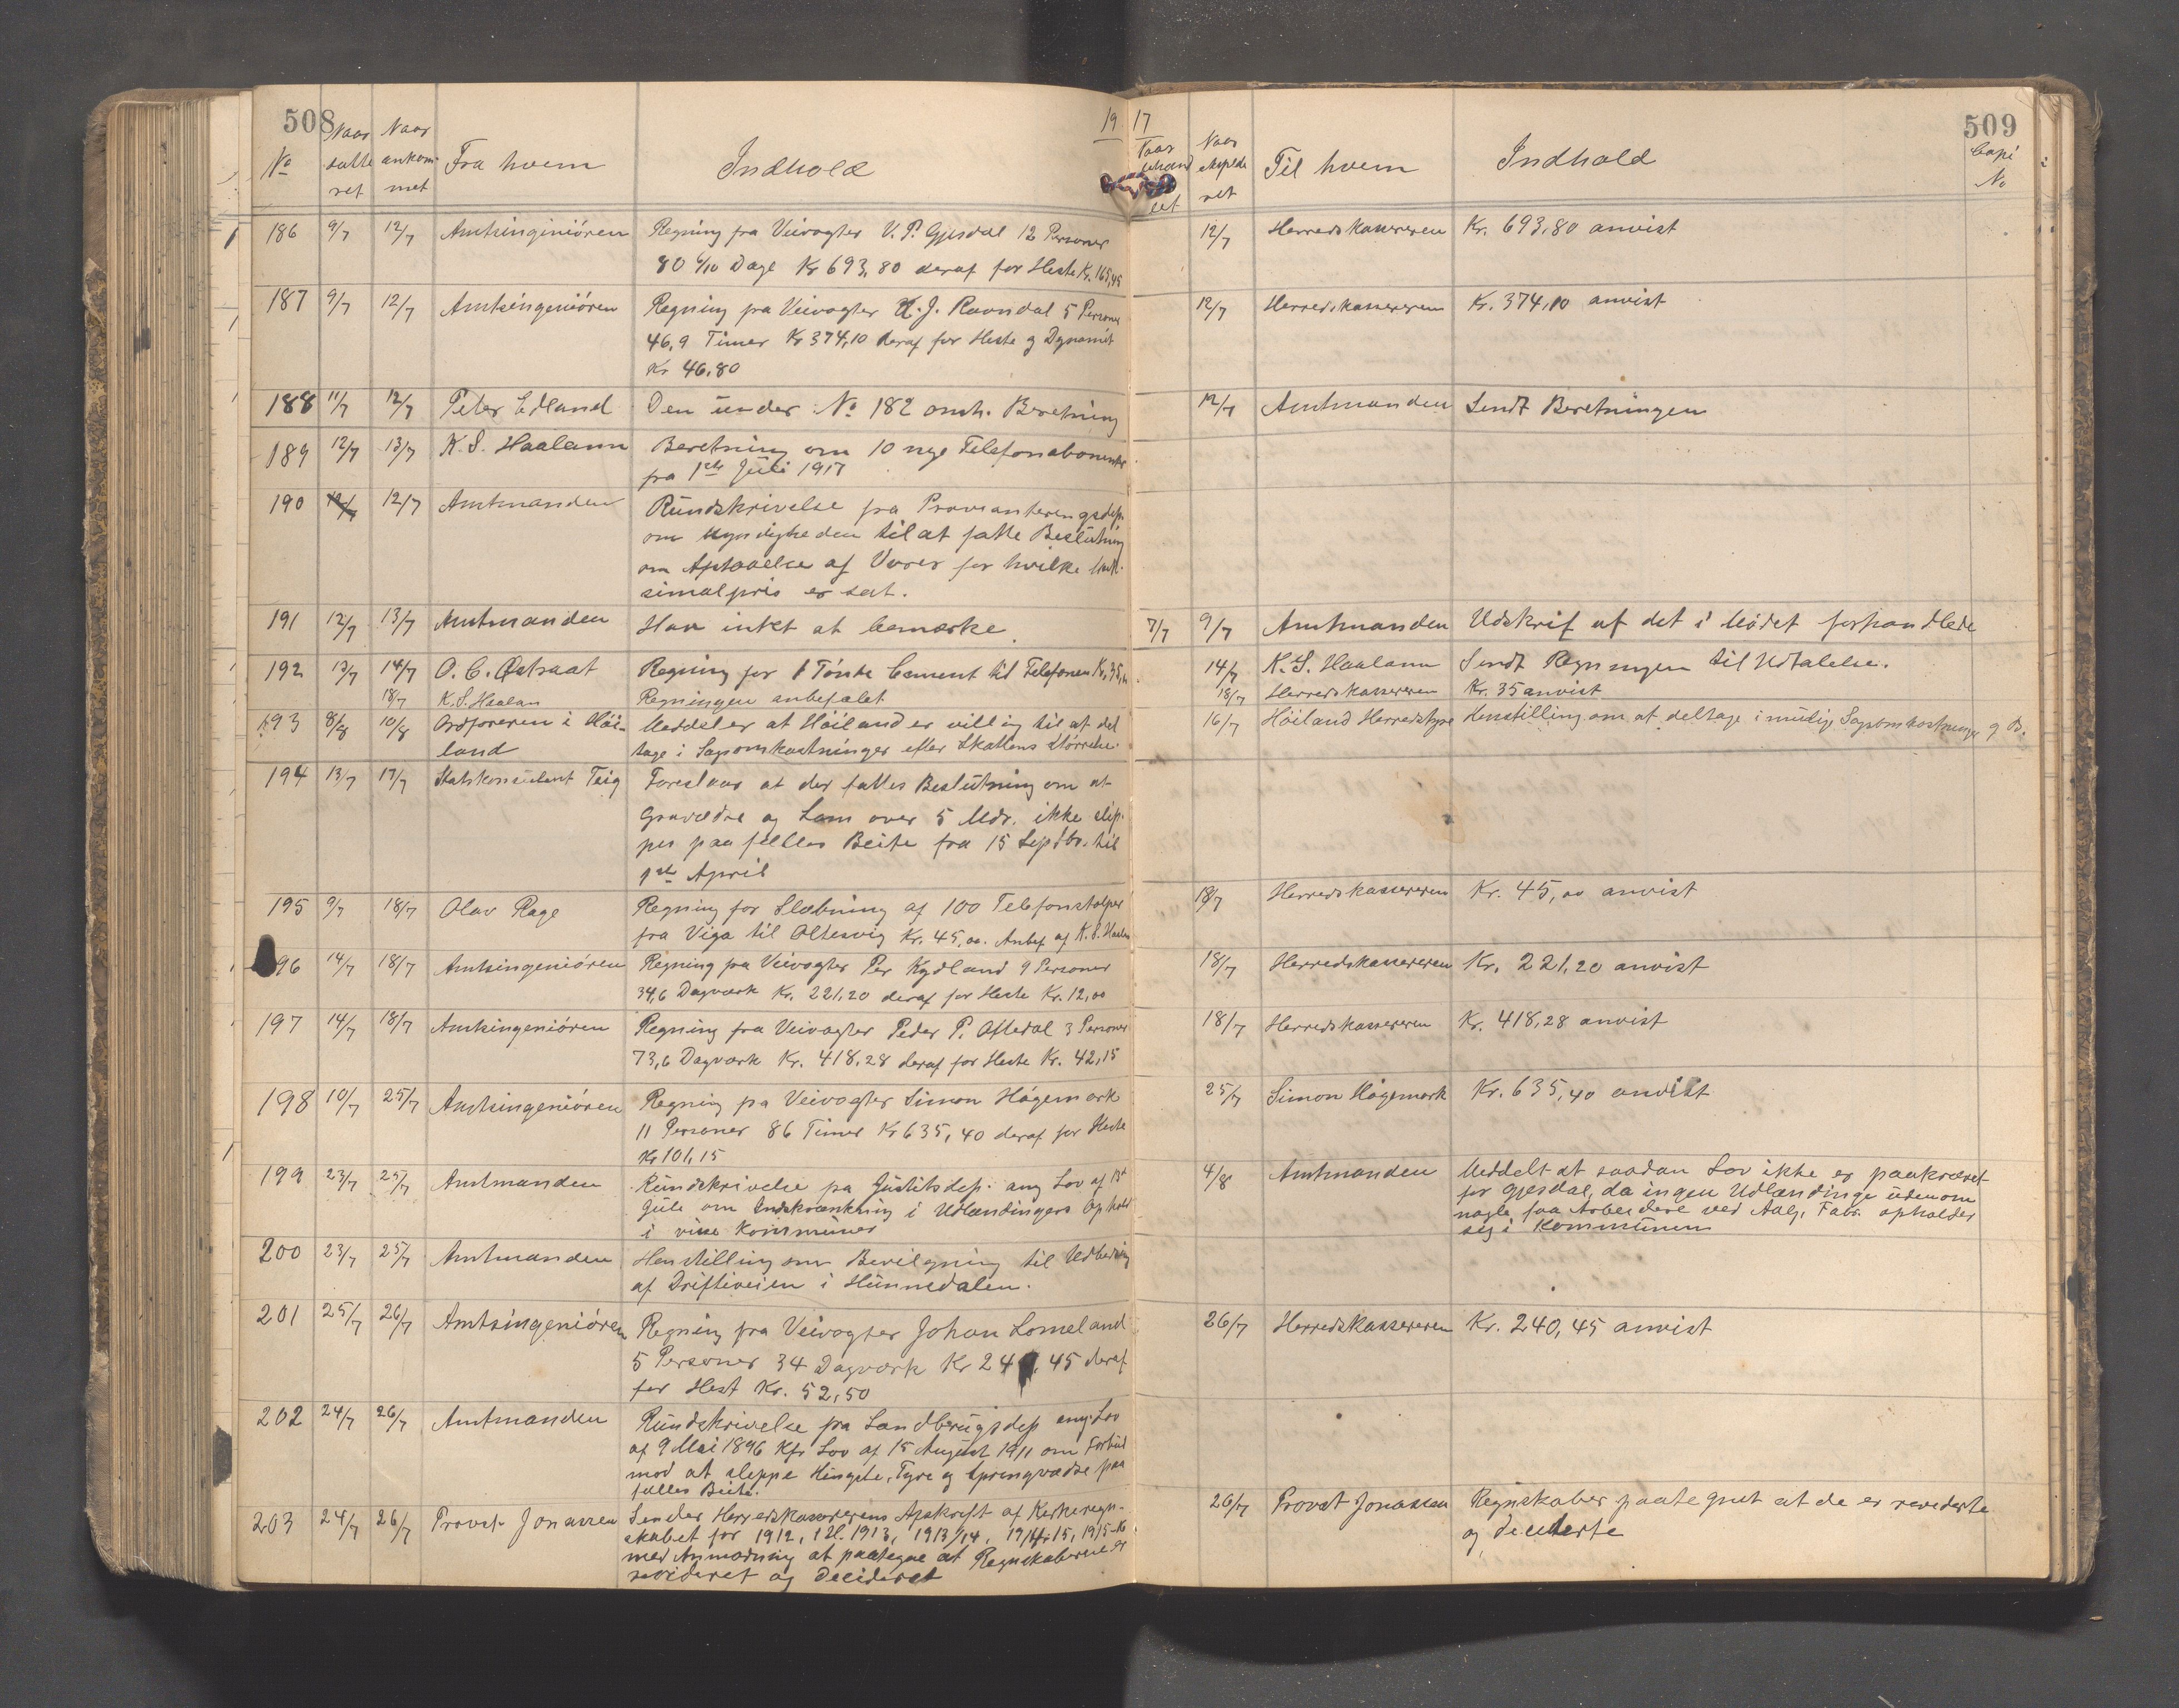 508
19
No
Naar datteret
Naar ankommet
Fra hvem
Indhold
186 9/7 12/7 Amtsinginiøren Regning fra Veivogter V. P. Gjesdal 12 Personer
80 6/10 Dage Kr 693,80 deraf for Heste Kr. 165,45
187 9/7 12/7 Amtsingeniøren Regning fra Veivogter J. Ravndal 5 Personer
46,9 Timer Kr 374,10 deraf for Heste og Dynamit
Kr 46,80
188 11/7 12/7 Peter Edland Den under No 182 omh. Beretning
189 12/7 13/7 K. S. Haalann Beretning om 10 nye Telefonabonenter
fra 1ste Juli 1917
190 12/7 Amtmanden Rundskrivelse fra Provianteringsdep.
om Myndigheden til at fatte Beslutning
om Aftaaelse af Varer for hvilke Mak-
simalpris er sat.
191 12/7 13/7 Amtmanden Har intet at bemærke.
192 13/7 14/7 O. C. Østraat Regning for 1 Tønde Cement til Telefonen Kr. 35,
18/7 K. S. Haalan Regningen anbefalet
193 8/8 10/8 Ordføreren i Høi- Meddeler at Høiland er villig til at del
land tage i Sagsomkostninger efter Skattens Størrelse.
194 13/7 17/7 Statskonsulent Teig Foreslaar at der fattes Beslutning om at
Gravædre og Lam over 5 Mdr. ikke slip-
pes paa fælles Beite fra 15 Septbr. til
1ste April
195 9/7 18/7 Olav Rage Regning for Slæbning af 100 Telefonstolper
fra Viga til Oltesvig Kr. 45,00. Anbef af K. S. Haalan
96 14/7 18/7 Amtsingeniøren Regning fra Veivogter Per Kydland 9 Personer
34,6 Dagværk Kr. 221,20 deraf for Heste Kr. 12,00
197 14/7 18/7 Amtsingeniøren Regning fra Veivogter Peder P. Oftedal 3 Personer
73,6 Dagværk Kr. 418,28 deraf for Heste Kr. 42,15
198 10/7 25/7 Amtsingeniøren Regning fra Veivogter Simon Høgemark
11 Personer 86 Timer Kr 635,40 deraf for Heste
Kr 101,15
199 23/7 25/7 Amtmanden Rundskrivelse fra Justitsdep. ang Lov af 13
Jule om Indskrænkning i Udlændingers Ophold
i visse Kommuner
200 23/7 25/7 Amtmanden Henstilling om Bevilgning til Udbedring
af Driftiveien i Hunnedalen.
201 25/7 26/7 Amtsingeniøren Regning fra Veivogter Johan Lomeland
5 Personer 34 Dagværk Kr 240,45 deraf
for Hest Kr. 52,50
202 24/7 26/7 Amtmanden Rundskrivelse fra Landbrugsdep ang. Lov
af 9 Mai 1896 Kfr Lov af 15 August 1911 om Forbud
mod at sleppe Hingste, Tyre og Springvædre paa
fælles Beite.
203 24/7 26/7 Provst Jonassen Sender Herredskassererens Afskrift af Kirkeregn-
skabet for 1912, 1 H. 1913, 1913/14, 1914-15, 1915-16
med Anmodning at paategne at Regnskaberne er
revideret og decideret
509
17
Naar
Naar expederet
Til hvem
Indhold
Copi
No
12/7 Herredskassereren Kr. 693,80 anvist
12/7 Herredskassereren Kr. 374,10 anvist
12/7 Amtmanden Sendt Beretningen
7/7 9/7 Amtmanden Udskrif af det i Mødet forhandlede
14/7 K. S. Haalann Sendt Regningen til Udtalelse.
18/7 Herredskassereren Kr. 35 anvist
16/7 Høiland Herredstyre Henstilling om at deltage i mulige Sagsomkostninger
18/7 Herredskassereren Kr. 45,00 anvist
18/7 Herredskassereren Kr. 221,20 anvist
18/7 Herredskassereren Kr. 418,28 anvist
25/7 Simon Høgemark Kr. 635,40 anvist
4/8 Amtmanden Meddelt at saadan Lov ikke er paakrævet
for Gjesdal, da ingen Udlændinge udenom
nogle faa Arbeidere ved Aalg. Fabr. opholder
sig i Kommunen
26/7 Herredskassereren Kr. 240,45 anvist
26/7 Provst Jonassen Regnskaber paategnet at de er reviderte
og deciderte